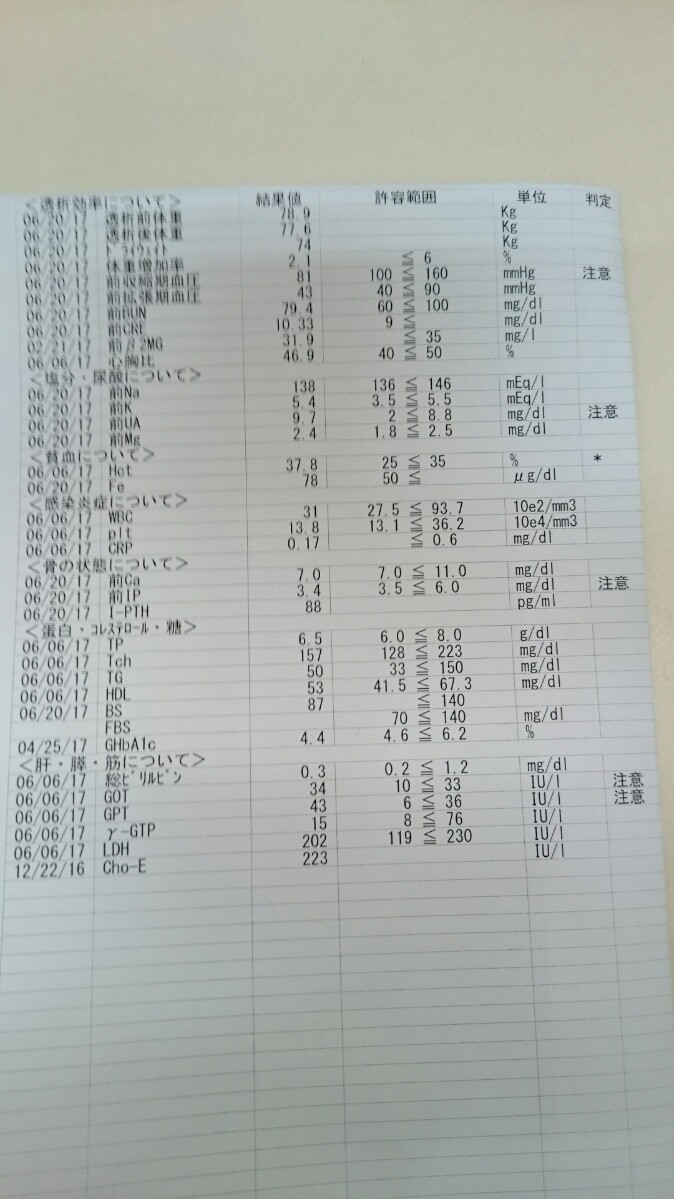 ＜透析効率について＞ 結果値 許容範囲 単位 判定
06/20/17 透析前体重 78.9 Kg
06/20/17 透析後体重 77.6 Kg
06/20/17 ﾄﾞﾗｲｳｪｲﾄ 74 Kg
06/20/17 体重増加率 2.1 ≦ 6 %
06/20/17 前収縮期血圧 81 100 ≦ 160 mmHg 注意
06/20/17 前拡張期血圧 43 40 ≦ 90 mmHg
06/20/17 前BUN 79.4 60 ≦ 100 mg/dl
06/20/17 前CRE 10.33 9 ≦ mg/dl
02/21/17 前β2MG 31.9 ≦ 35 mg/l
06/06/17 心胸比 46.9 40 ≦ 50 %
＜塩分・尿酸について＞
06/20/17 前Na 138 136 ≦ 146 mEq/l
06/20/17 前K 5.4 3.5 ≦ 5.5 mEq/l
06/20/17 前UA 9.7 2 ≦ 8.8 mg/dl 注意
06/20/17 前Mg 2.4 1.8 ≦ 2.5 mg/dl
＜貧血について＞
06/06/17 Hct 37.8 25 ≦ 35 % *
06/20/17 Fe 78 50 ≦ μg/dl
＜感染炎症について＞
06/06/17 WBC 31 27.5 ≦ 93.7 10e2/mm3
06/06/17 plt 13.8 13.1 ≦ 36.2 10e4/mm3
06/06/17 CRP 0.17 ≦ 0.6 mg/dl
＜骨の状態について＞
06/20/17 前Ca 7.0 7.0 ≦ 11.0 mg/dl
06/20/17 前IP 3.4 3.5 ≦ 6.0 mg/dl 注意
06/20/17 I-PTH 88 pg/ml
＜蛋白・ｺﾚｽﾃﾛｰﾙ・糖＞
06/06/17 TP 6.5 6.0 ≦ 8.0 g/dl
06/06/17 Tch 157 128 ≦ 223 mg/dl
06/06/17 TG 50 33 ≦ 150 mg/dl
06/06/17 HDL 53 41.5 ≦ 67.3 mg/dl
06/20/17 BS 87 ≦ 140
FBS 70 ≦ 140 mg/dl
04/25/17 GHbA1c 4.4 4.6 ≦ 6.2 %
＜肝・膵・筋について＞
06/06/17 総ﾋﾞﾘﾙﾋﾞﾝ 0.3 0.2 ≦ 1.2 mg/dl
06/06/17 GOT 34 10 ≦ 33 IU/l 注意
06/06/17 GPT 43 6 ≦ 36 IU/l 注意
06/06/17 γ-GTP 15 8 ≦ 76 IU/l
06/06/17 LDH 202 119 ≦ 230 IU/l
12/22/16 Cho-E 223 IU/l